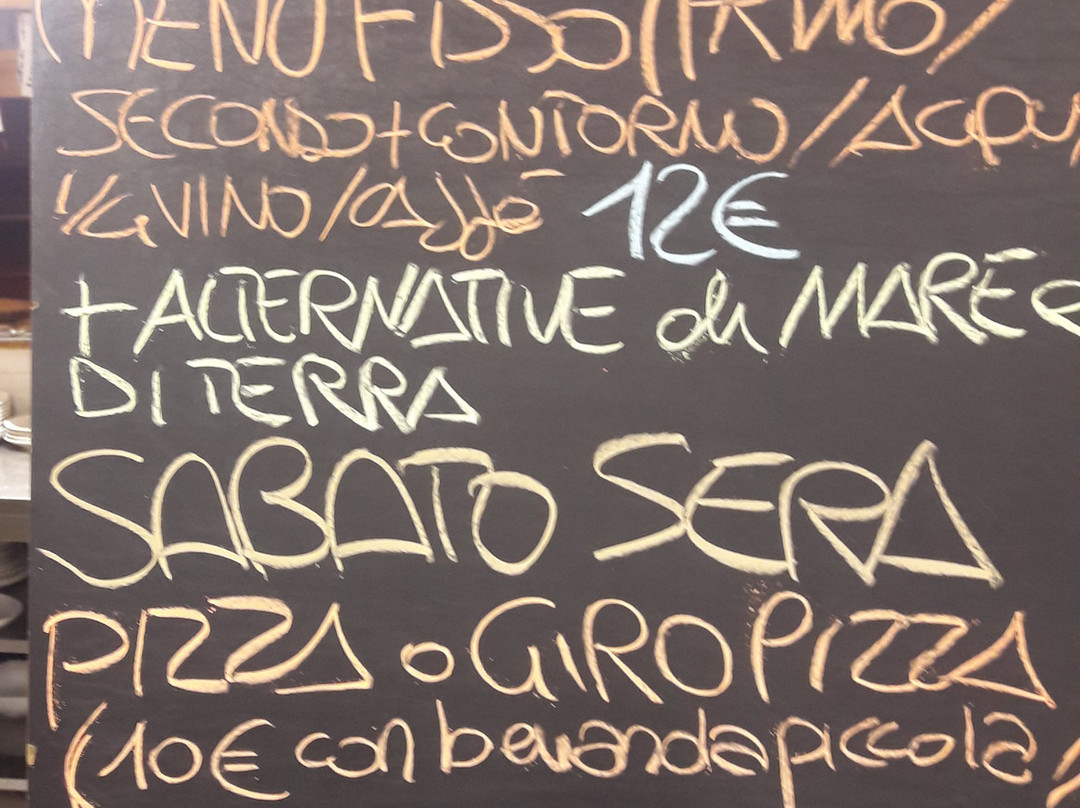 MENU FISSO (PRIMO/
SECONDO+CONTORNO/ACQUA
1/4 VINO/caffè 12€
+ ALTERNATIVE di MARE e
DI TERRA
SABATO SERA
PIZZA o GIROPIZZA
(10€ con bevanda piccola)